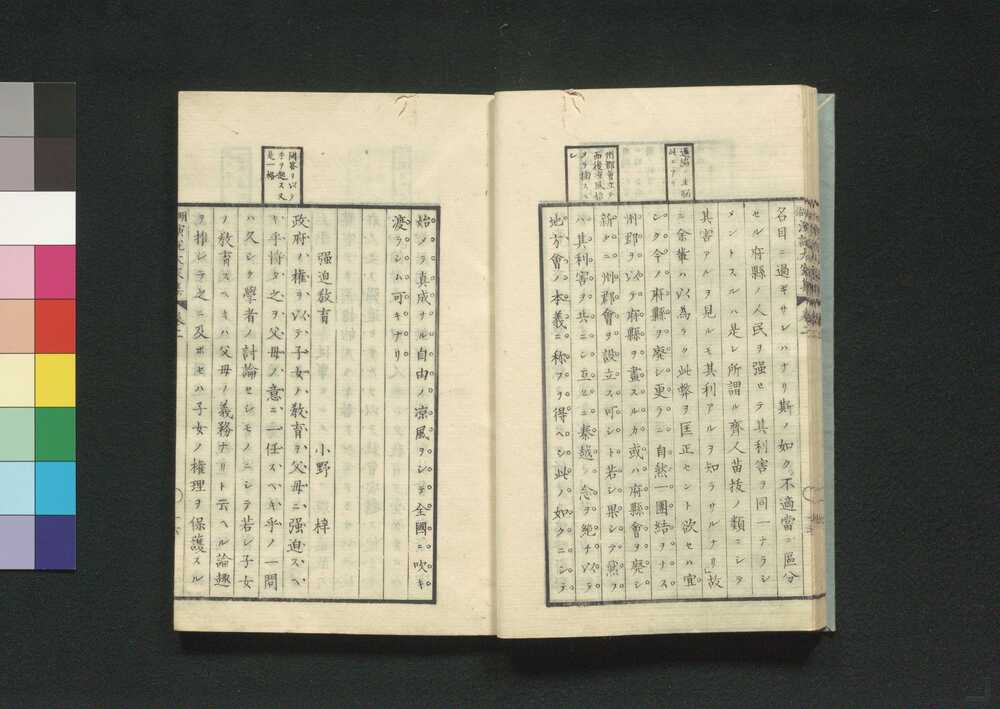 名目ニ過ギサレハナリ斯ノ如ク不適當ニ區分
セル府縣ノ人民ヲ强ヒテ其利害ヲ同一ナラシ
メントスルハ是レ所謂ル齊人苗拔ノ類ニシテ
其害アルヲ見ルモ其利アルヲ知ラサルナリ」故
ニ余輩ハ以為ラク此弊ヲ匡正セント欲セハ宜
シク今ノ府縣ヲ廢シ更ラニ自然一團結ヲナス
州郡ヲ以テ府縣ヲ畫スルカ或ハ府縣會ヲ廢シ
新タニ州郡會ヲ設立ス可シト若シ果シテ然ラ
ハ其利害ヲ共ニシ互ヒニ秦越ノ念ヲ絶チ以テ
地方會ノ本義ニ称フヲ得ヘシ此ノ如クニシテ
州郡會立テ
而後
始メテ真成ナル自由ノ凉風ヲシテ全國ニ吹キ
渡ラシム可キナリ
强迫敎育 小野 梓
政府ノ權ヲ以テ子女ノ敎育ヲ父母ニ强迫スヘ
キ乎將タ之ヲ父母ノ意ニ一任スヘキ乎ノ一問
ハ久シク學者ノ討論セシモノニシテ若シ子女
ノ敎育スヘキハ父母ノ義務ナリト云ヘル論趣
ヲ推シテ之ニ及ホセハ子女ノ權理ヲ保護スル
問答ヲ以テ
手ヲ起ス又
是一格